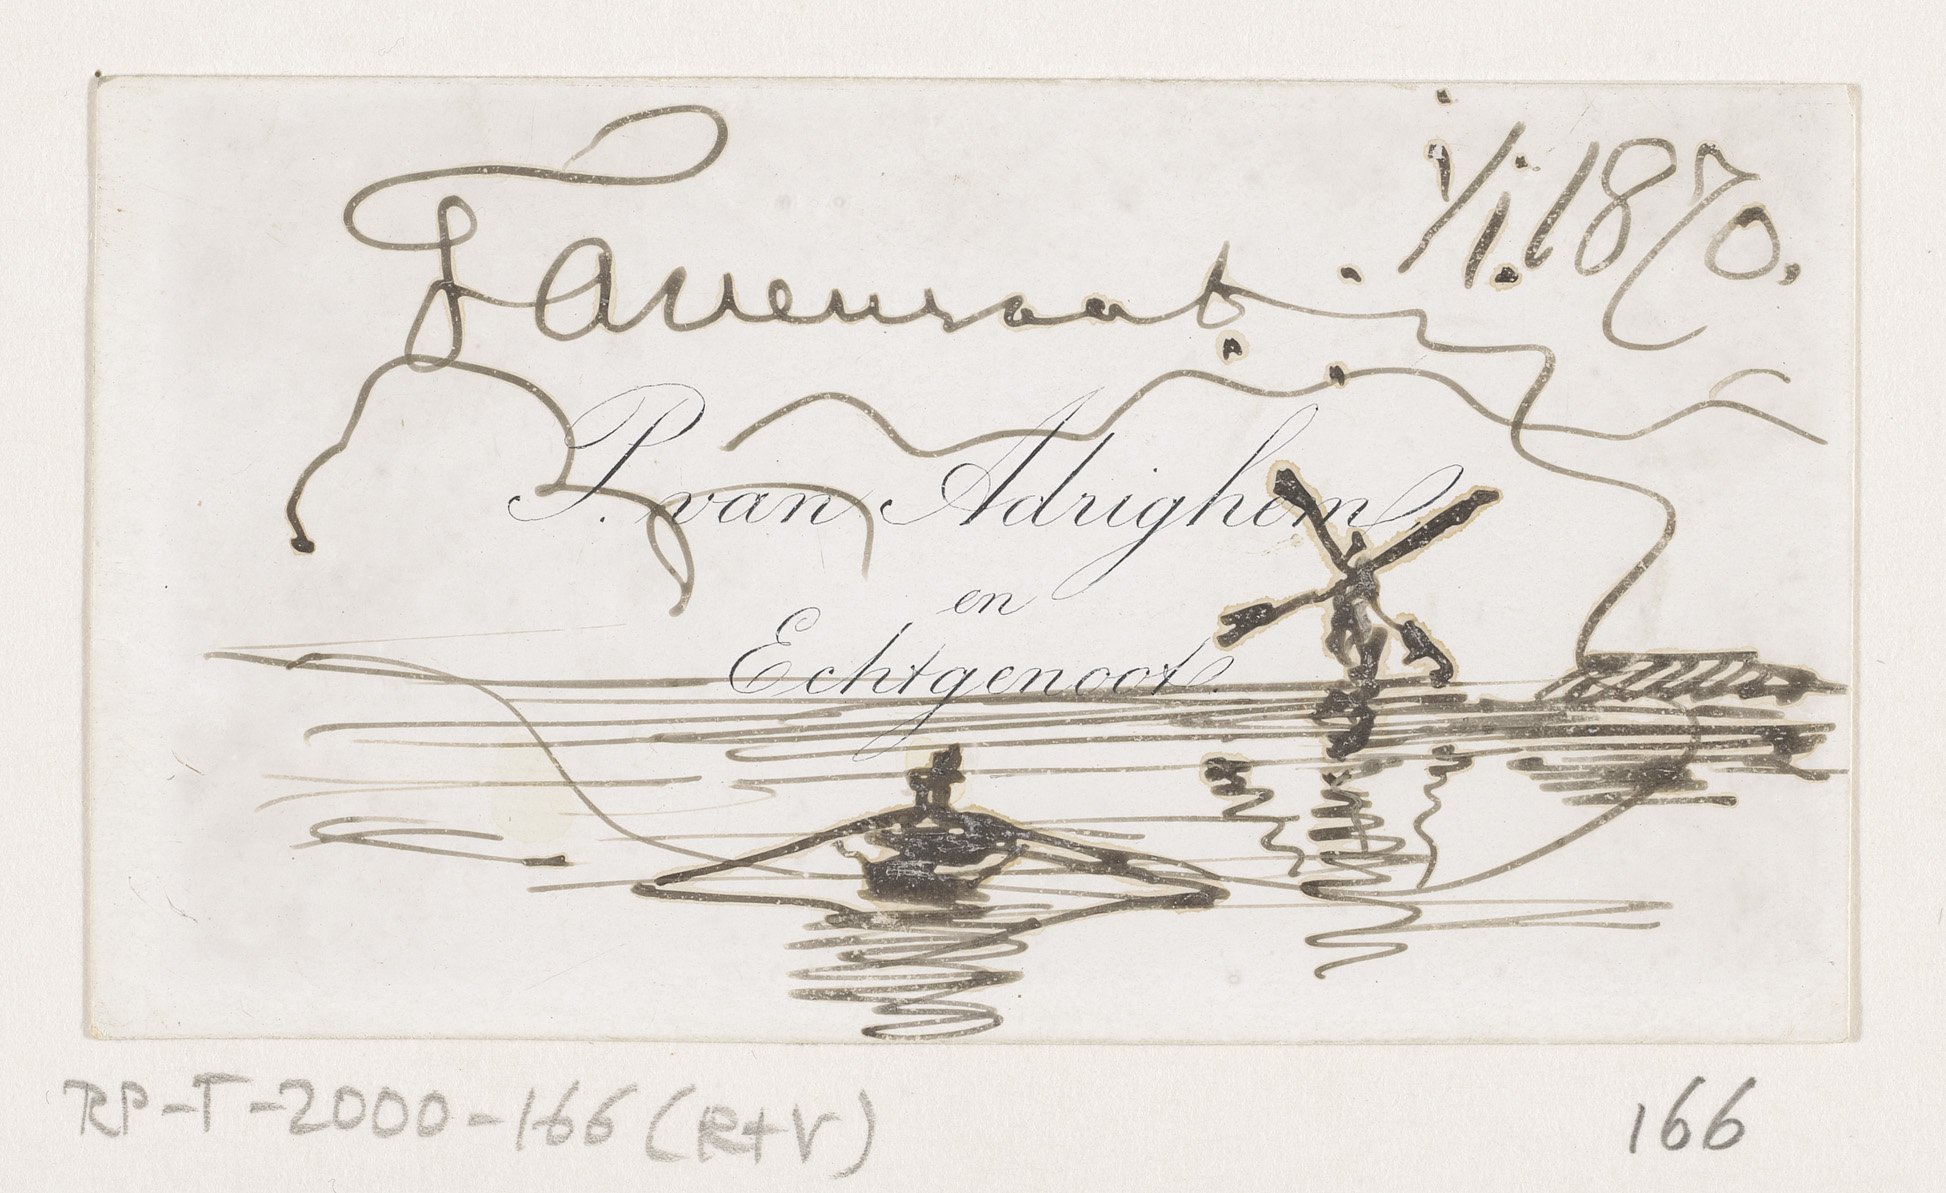 1/1. 1870.
Tavenraat.
P. van Adrighem
en
Echtgenoot.
RP-T-2000-166 (R+V)
166